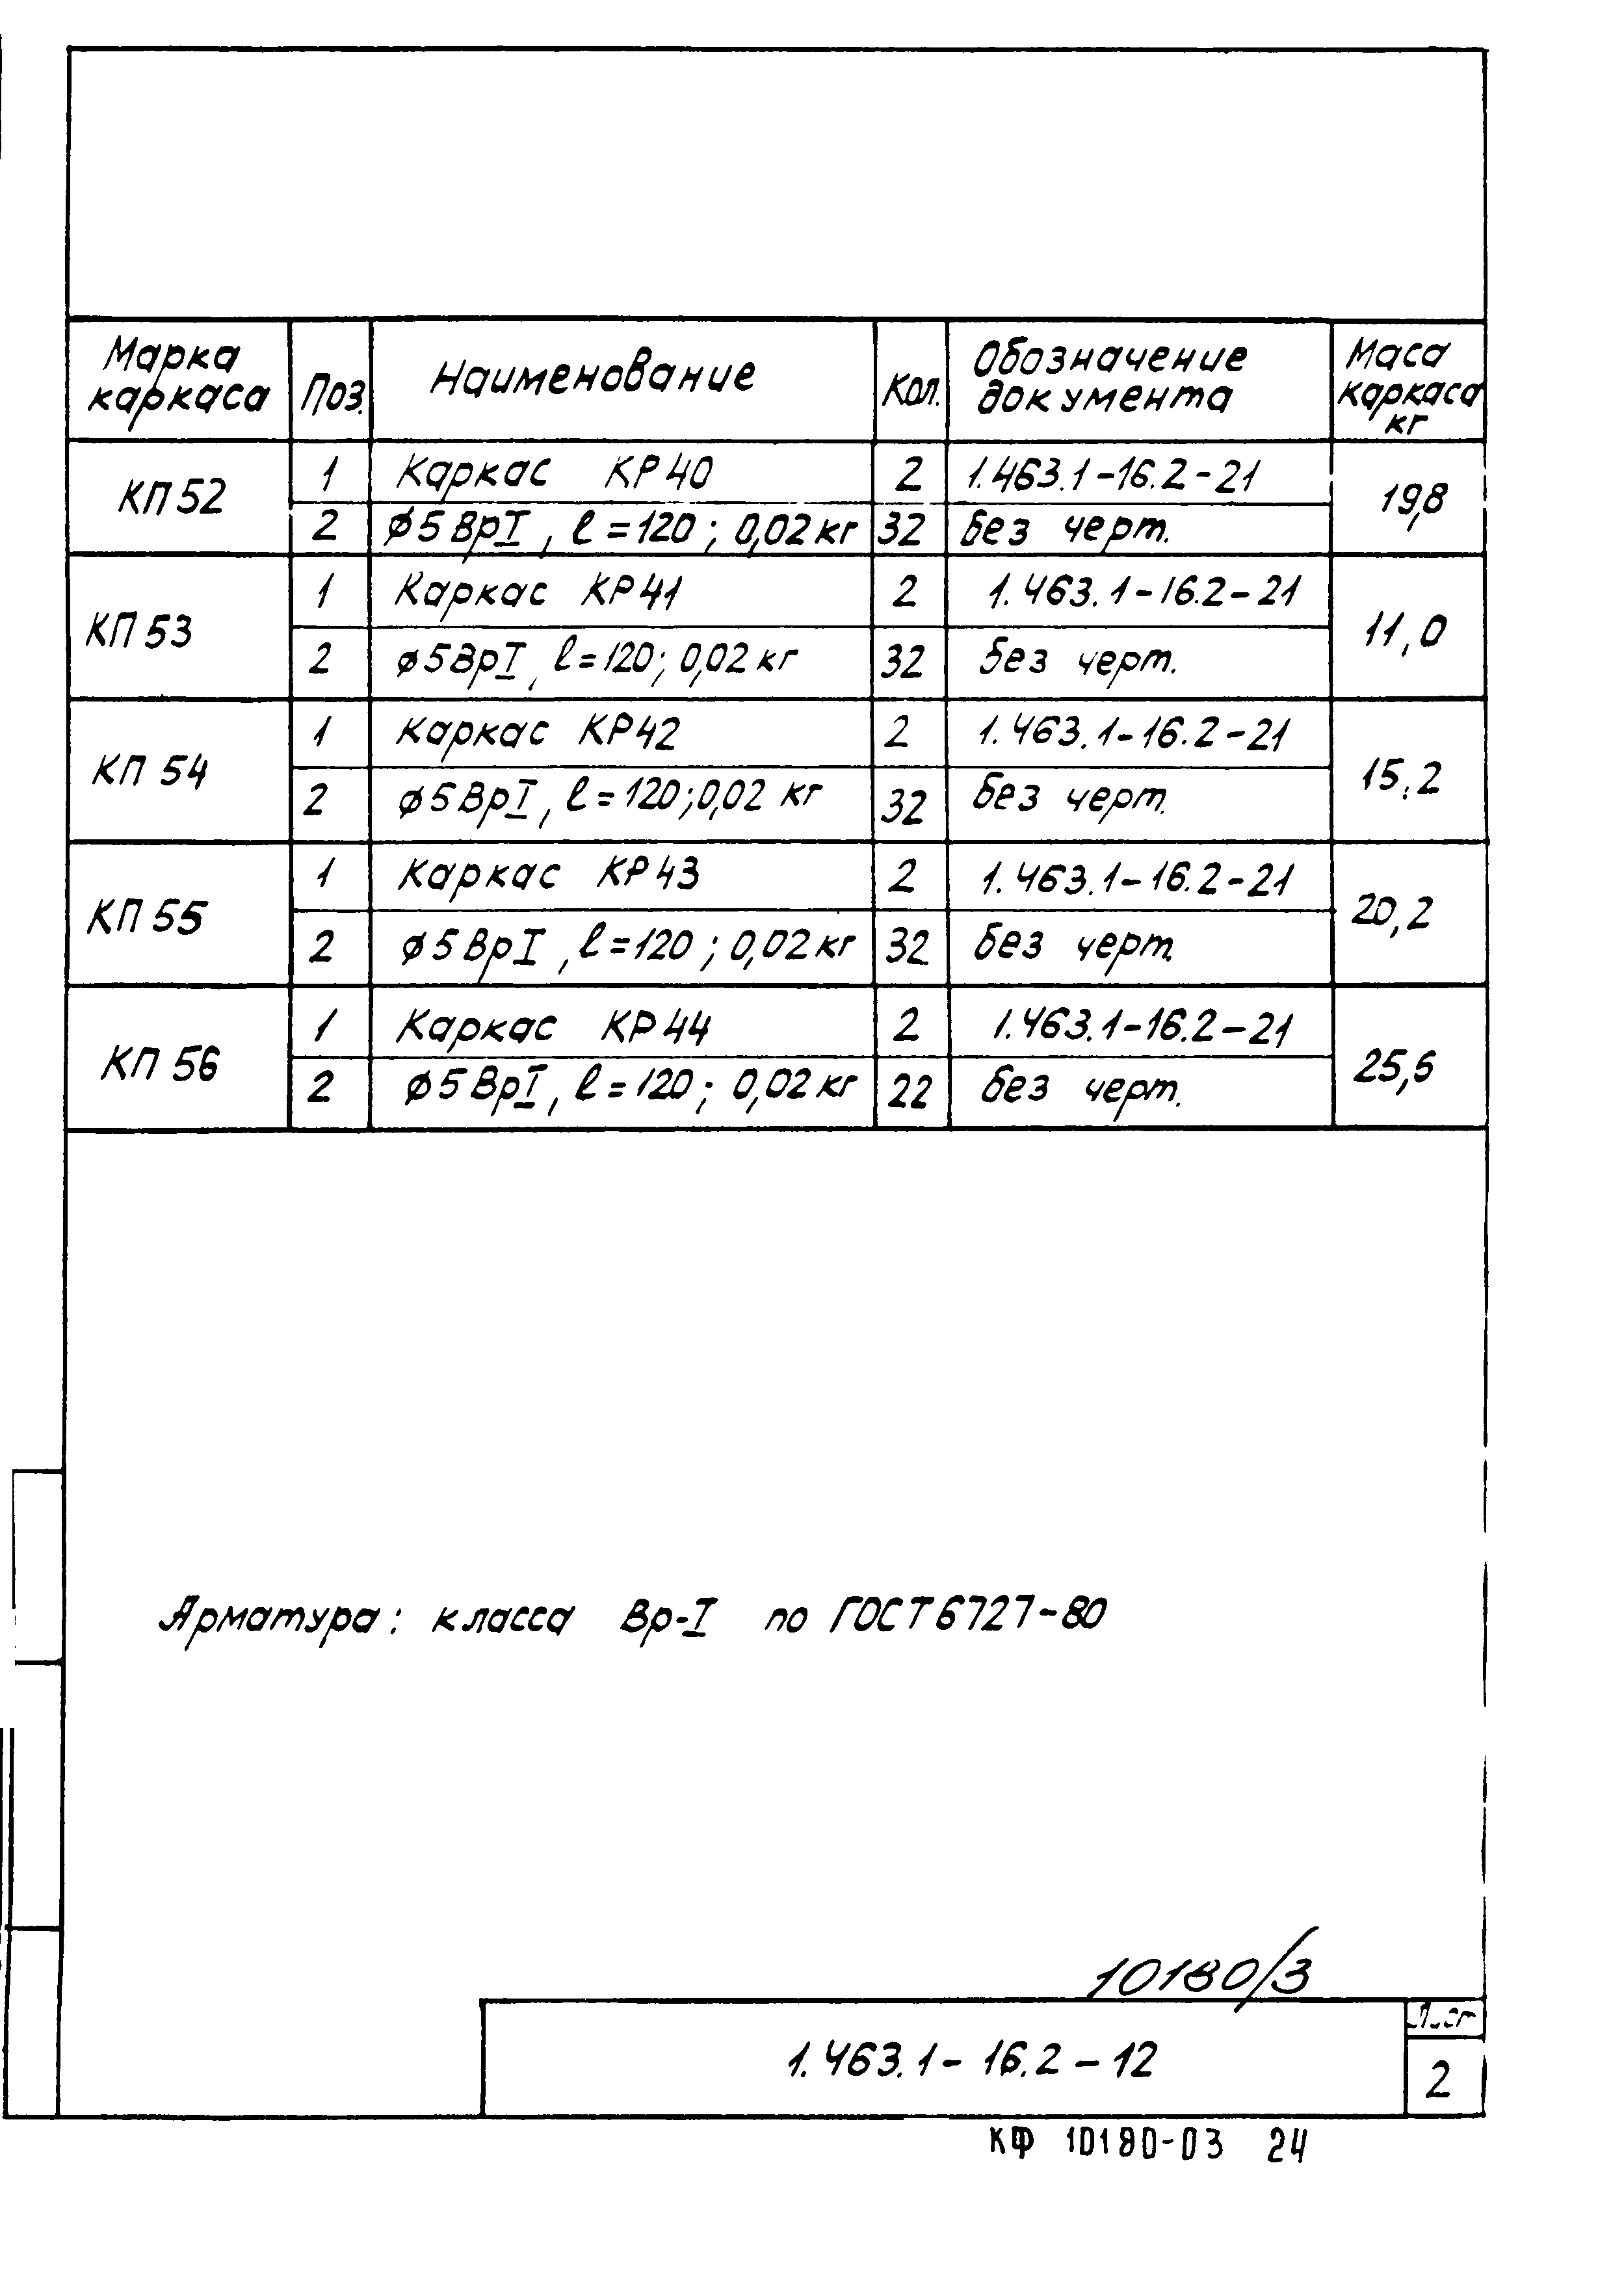 Марка каркаса Поз. Наименование Кол. Обозначение документа Маса каркаса кг
КП 52 1 Каркас КР40 2 1.463.1-16.2-21 19,8
2 ϕ5ВрI, ℓ=120; 0,02кг 32 без черт.
КП 53 1 Каркас КР41 2 1.463.1-16.2-21 11,0
2 ϕ5ВрI, ℓ=120; 0,02 кг 32 без черт.
КП 54 1 Каркас КР42 2 1.463.1-16.2-21 15,2
2 ϕ5ВрI, ℓ=120; 0,02 кг 32 без черт.
КП 55 1 Каркас КР43 2 1.463.1-16.2-21 20,2
2 ϕ5ВрI, ℓ=120; 0,02кг 32 без черт.
КП 56 1 Каркас КР44 2 1.463.1-16.2-21 25,6
2 ϕ5ВрI, ℓ=120; 0,02кг 22 без черт.
Арматура: класса Вр-I по ГОСТ 6727-80
10180/3
1.463.1-16.2-12
Лист
2
КФ 10180-03 24